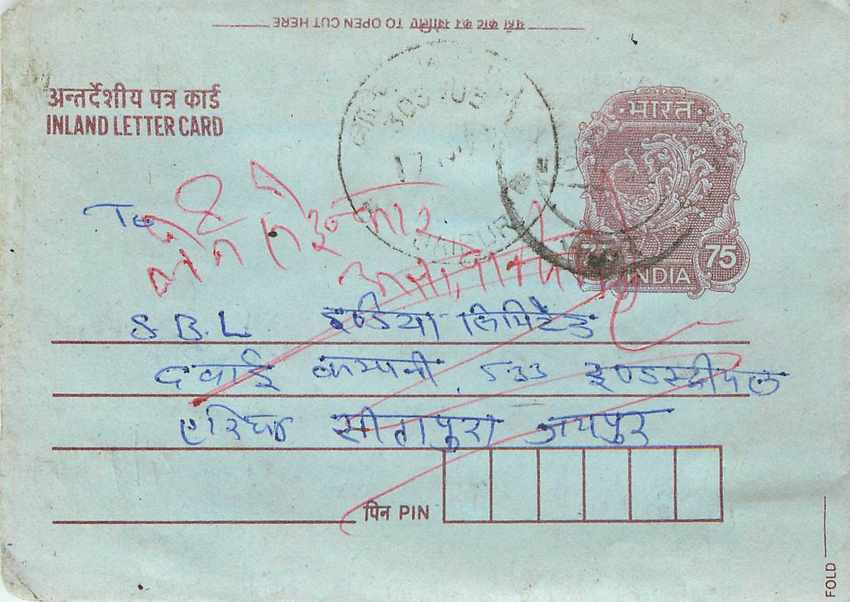 यहाँ काट कर खोलिए TO OPEN CUT HERE
अन्तर्देशीय पत्र कार्ड
INLAND LETTER CARD
भारत
75
INDIA
JAIPUR
To
S.B.L इण्डिया लिमिटेड
दवाई कम्पनी, 533 इण्डस्ट्रीयल
एरिया सीतापुरा जयपुर
पिन PIN
FOLD